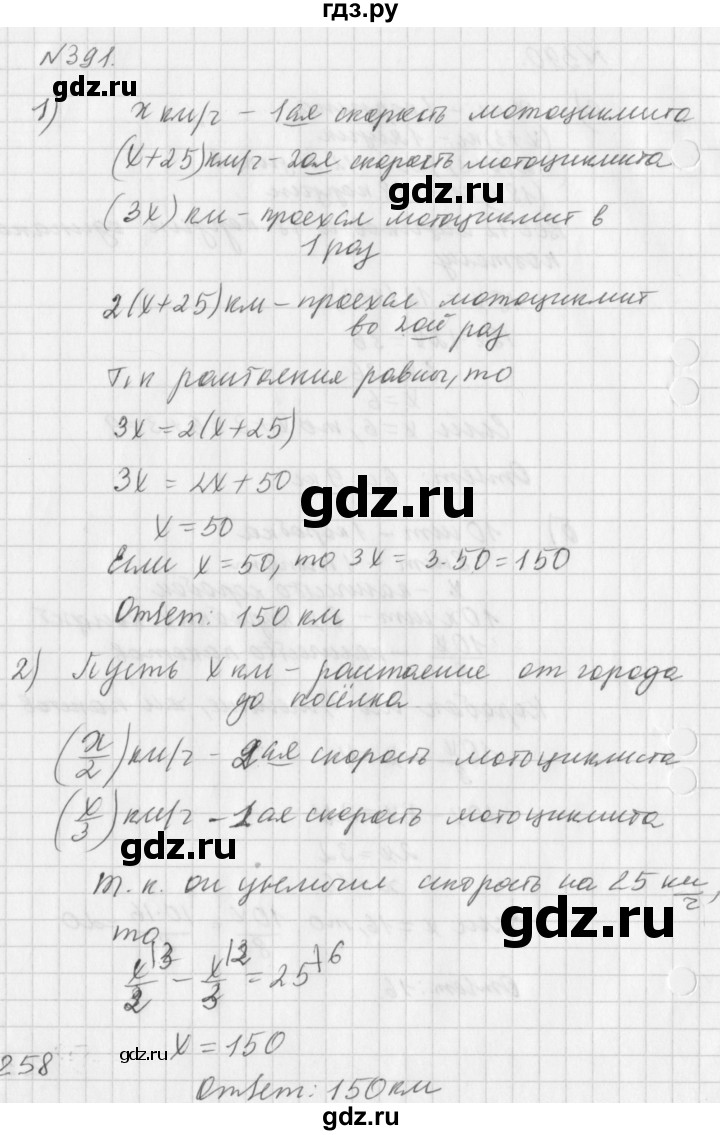 гдз.ру
№391.
gdz.ru
1) x км/ч – 1ая скорость мотоциклиста
(x+25)км/ч – 2ая скорость мотоциклиста
(3x) км – проехал мотоциклист в
1 раз
2(x+25)км – проехал мотоциклист
во 2ой раз
Т.к расстояния равны, то
3x = 2(x+25)
3x = 2x + 50
gdz.ru
x = 50
Если x = 50, то 3x = 3·50 = 150
Ответ: 150 км
2) Пусть x км – расстояние от города
до посёлка.
(x/2) км/ч – 2ая скорость мотоциклиста
(x/3) км/ч – 1ая скорость мотоциклиста
gdz.ru
gdz.ru
Т.к. он увеличил скорость на 25 км/ч,
то
gdz.ru
x/2 |3 – x/3 |2 = 25 |6
gdz.ru
x = 150
258
Ответ: 150км
gdz.ru